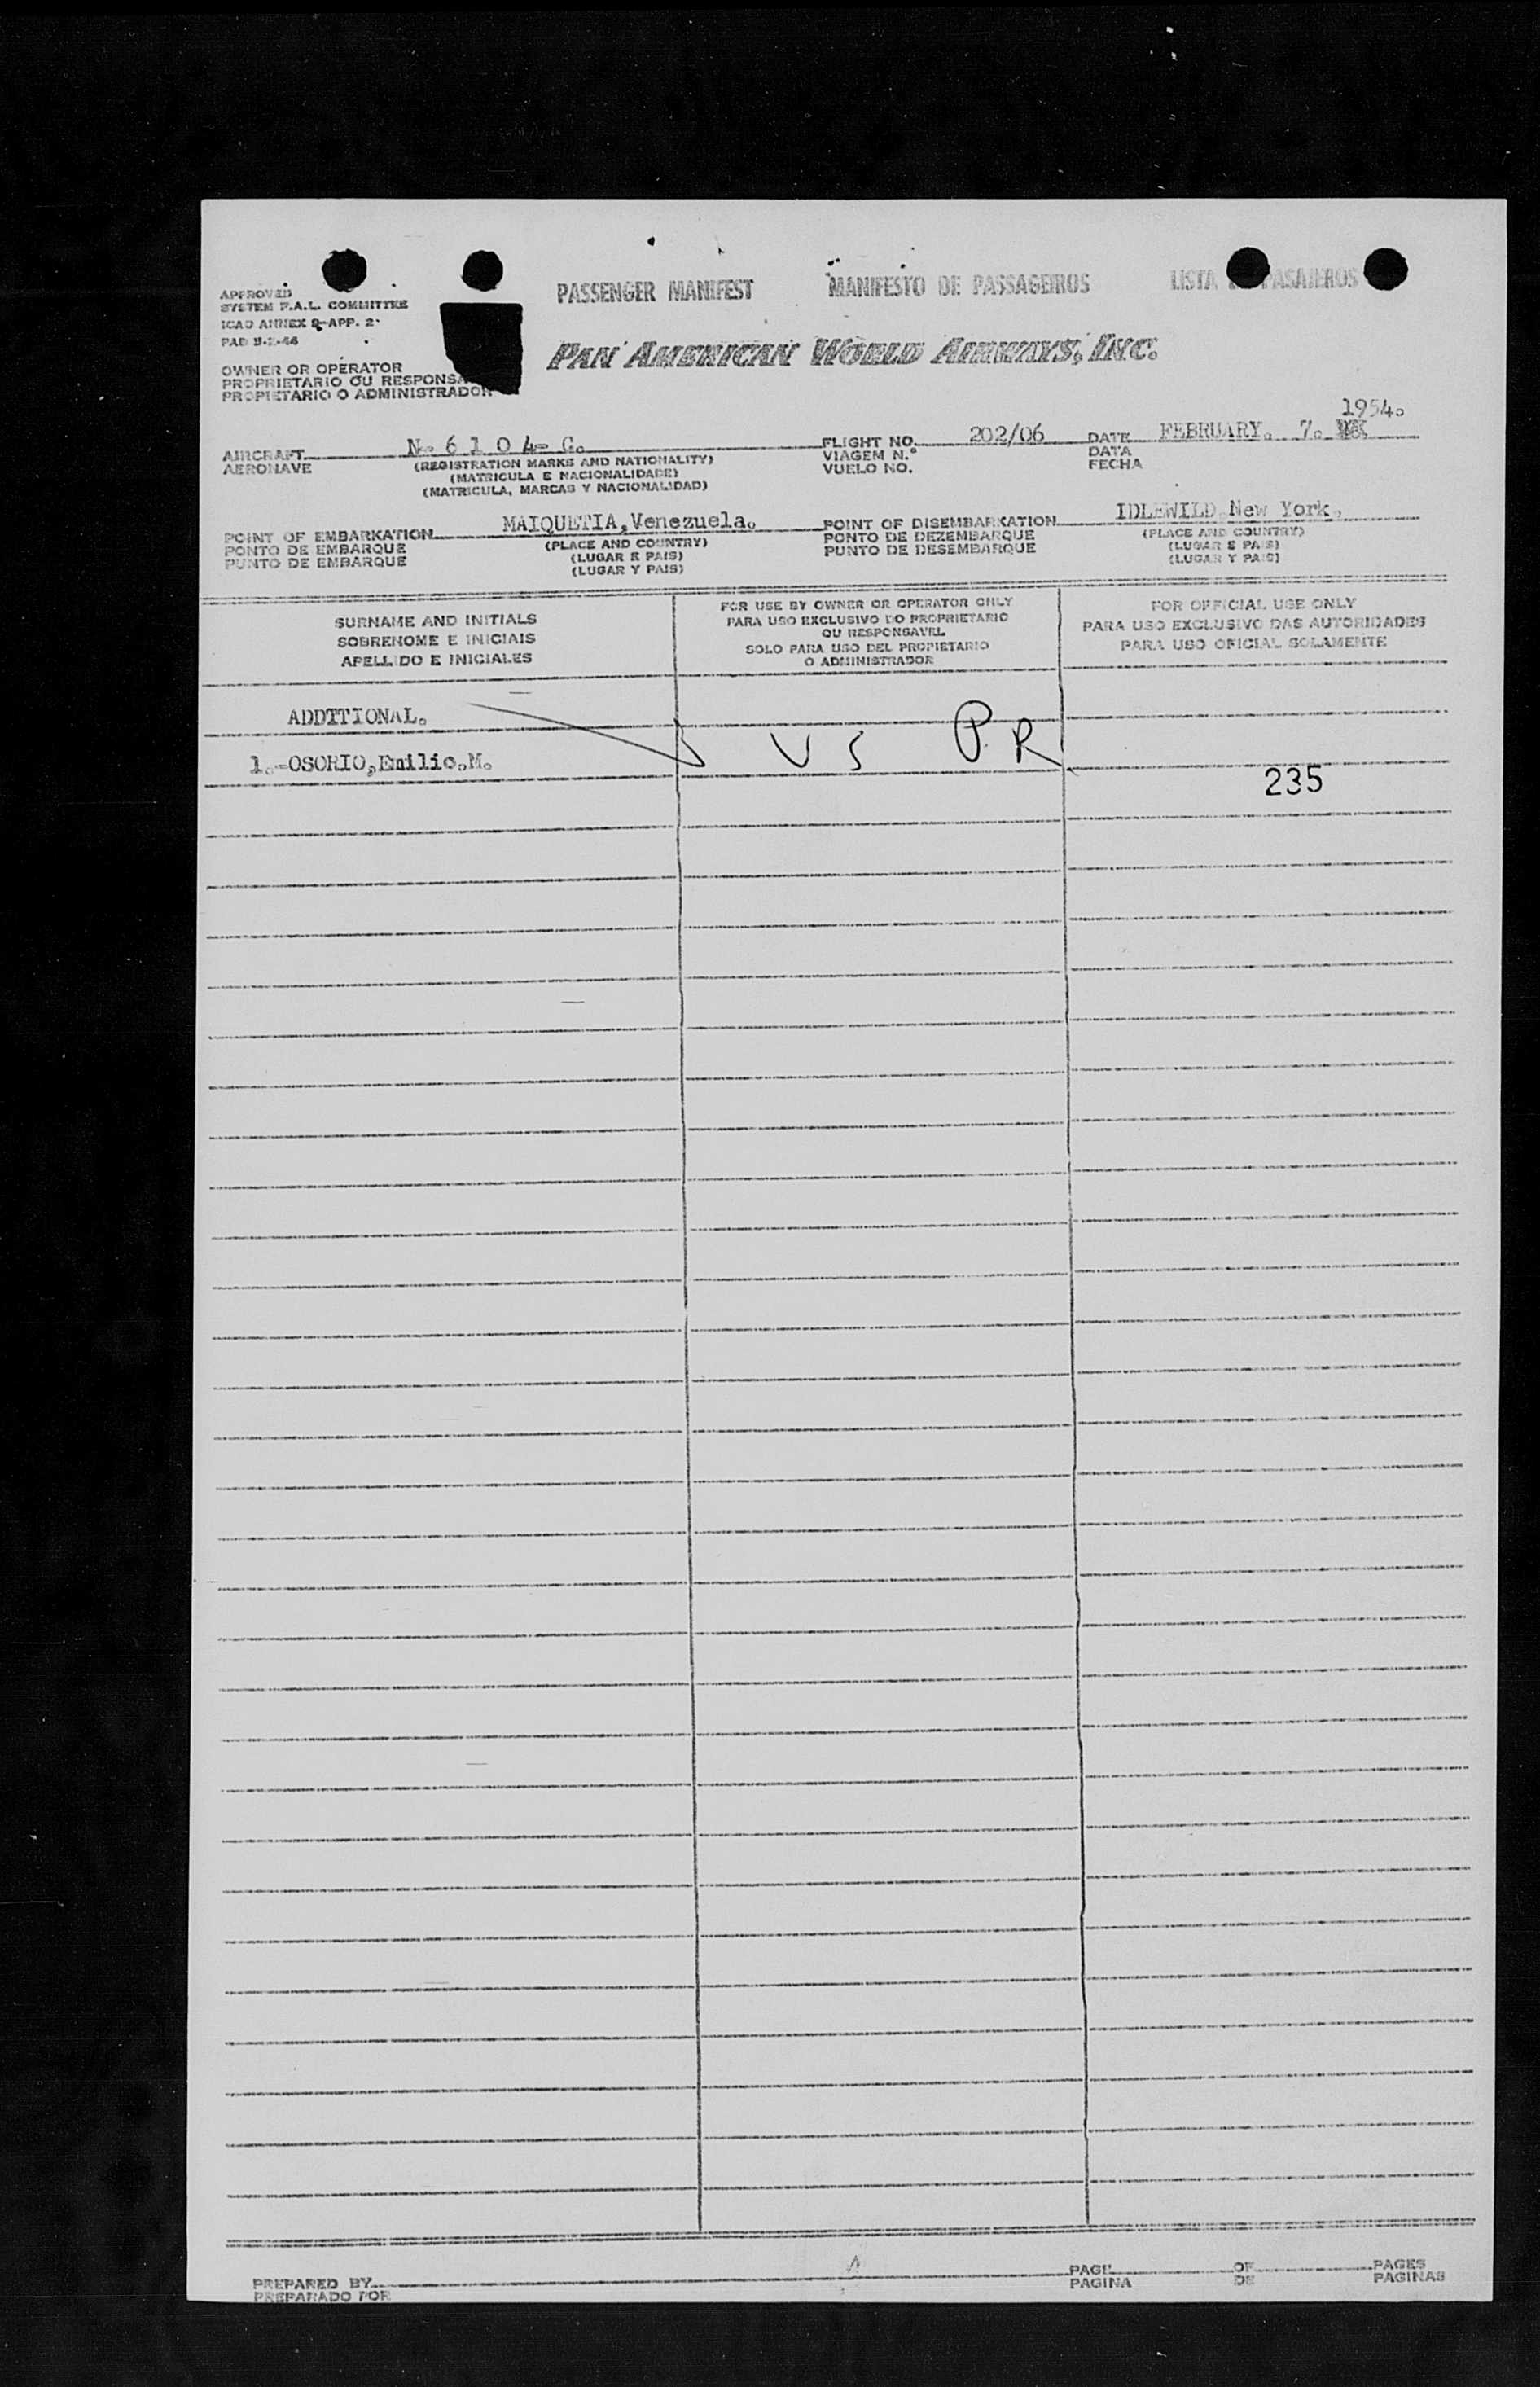 PASSENGER MANIFEST MANIFESTO DE PASSAGEIROS LISTA PASAJEROS
APPROVED
SYSTEM F.A.L. COMMITTEE
ICAO ANNEX 9-APP. 2
PAN AMERICAN WORLD AIRWAYS, INC.
OWNER OR OPERATOR
PROPRIETARIO OU RESPONSA
PROPIETARIO O ADMINISTRADOR
1954.
AIRCRAFT N. 6 1 0 4- C. FLIGHT NO. 202/06 DATE FEBRUARY. 7.
AERONAVE (REGISTRATION MARKS AND NATIONALITY) VIAGEM N.° DATA
(MATRICULA E NACIONALIDADE) VUELO NO. FECHA
(MATRICULA, MARCAS Y NACIONALIDAD)
POINT OF EMBARKATION MAIQUETIA,Venezuela. POINT OF DISEMBARKATION IDLEWILD,New York.
PONTO DE EMBARQUE (PLACE AND COUNTRY) PONTO DE DEZEMBARQUE (PLACE AND COUNTRY)
PUNTO DE EMBARQUE (LUGAR E PAIS) PUNTO DE DESEMBARQUE (LUGAR E PAIS)
(LUGAR Y PAIS) (LUGAR Y PAIS)
SURNAME AND INITIALS
SOBRENOME E INICIAIS
APELLIDO E INICIALES
FOR USE BY OWNER OR OPERATOR ONLY
PARA USO EXCLUSIVO DO PROPRIETARIO
OU RESPONSAVEL
SOLO PARA USO DEL PROPIETARIO
O ADMINISTRADOR
FOR OFFICIAL USE ONLY
PARA USO EXCLUSIVO DAS AUTORIDADES
PARA USO OFICIAL SOLAMENTE
ADDITIONAL.
1.-OSORIO,Emilio.M. U S P.R
235
PREPARED BY PAGE OF PAGES
PREPARADO POR PAGINA DE PAGINAS